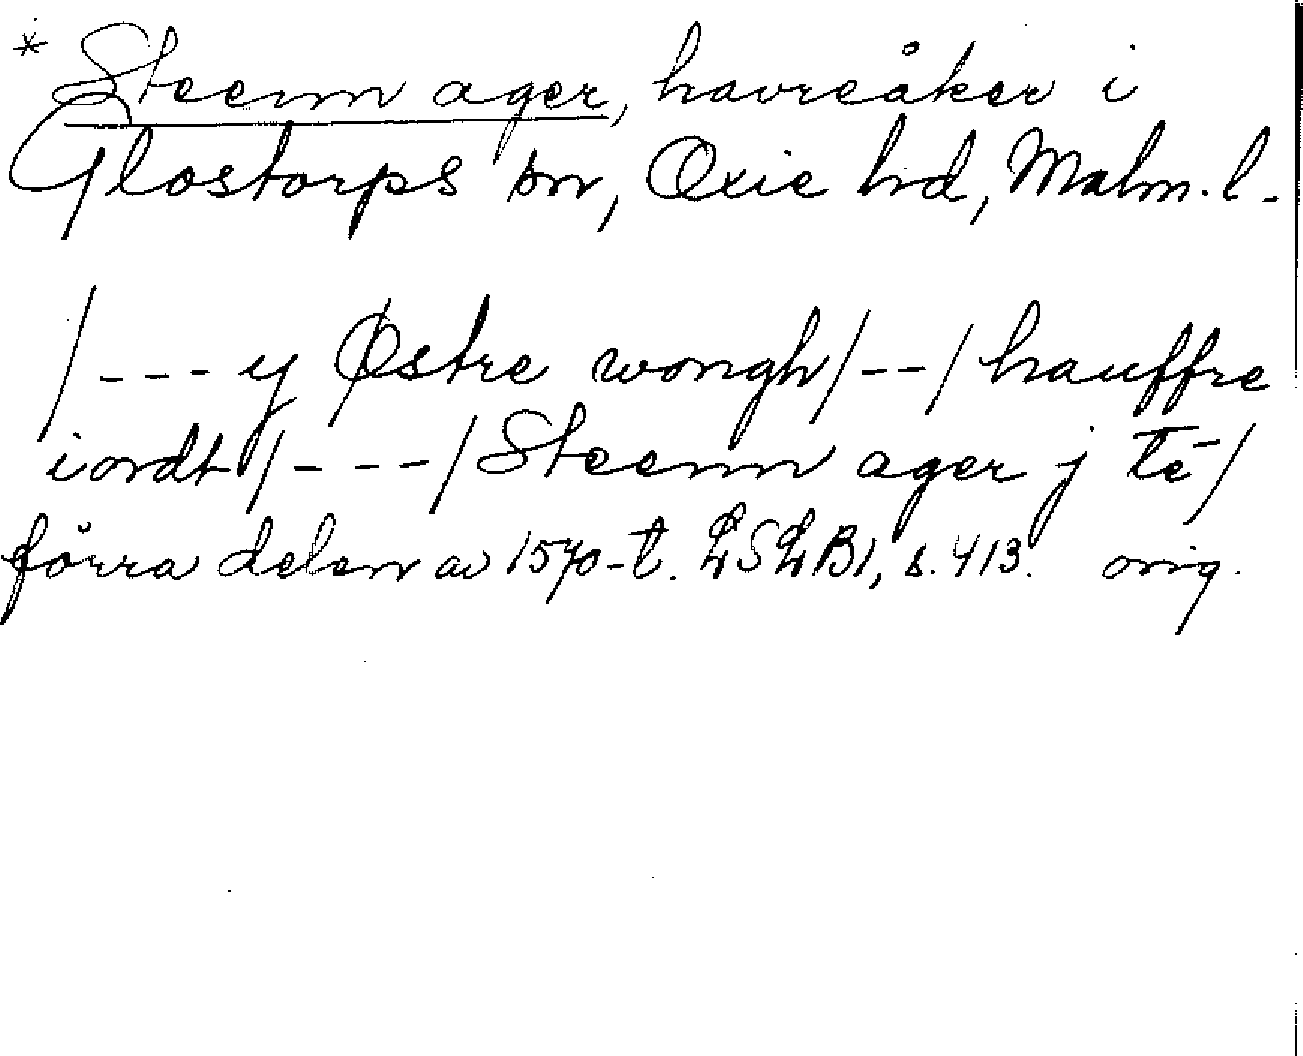 * Steenn ager, havreåker i
Glostorps sn, Oxie hd, Malm. l.
/--- y Østre wongh/--/hauffre
iordt/---/Steenn ager j tē/
förra delen av 1570-t. LSLB1, s. 413. orig.